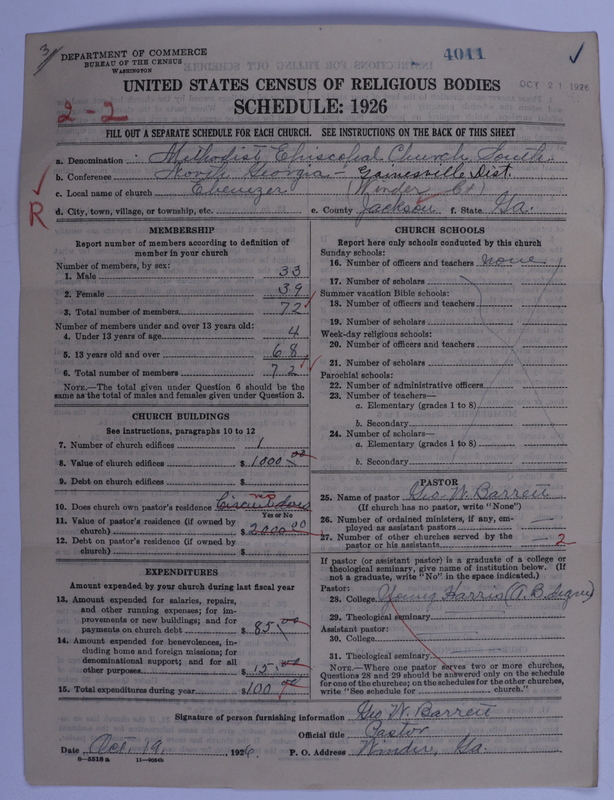 3
DEPARTMENT OF COMMERCE
BUREAU OF THE CENSUS
WASHINGTON
4041
OCT 21 1926
UNITED STATES CENSUS OF RELIGIOUS BODIES
SCHEDULE: 1926
2-2
FILL OUT A SEPARATE SCHEDULE FOR EACH CHURCH. SEE INSTRUCTIONS ON THE BACK OF THIS SHEET
a. Denomination Methodist Episcopal Church, South
b. Conference North Georgia - Gainesville Dist.
c. Local name of church Ebenezer (Winder Ct)
R
d. City, town, village, or township, etc. e. County Jackson f. State Ga.
MEMBERSHIP
Report number of members according to definition of
member in your church
Number of members, by sex:
1. Male 33
2. Female 39
3. Total number of members 72
Number of members under and over 13 years old:
4. Under 13 years of age 4
5. 13 years old and over 68
6. Total number of members 72
NOTE.—The total given under Question 6 should be
same as the total of males and females given under Question 3.
CHURCH BUILDINGS
See instructions, paragraphs 10 to 12
7. Number of church edifices 1
8. Value of church edifices $ 1000 00
9. Debt on church edifices $
10. Does church own pastor's residence no Circuit does
Yes or No
11. Value of pastor's residence (if owned by
church) $ 2000 00
12. Debt on pastor's residence (if owned by
church) $
EXPENDITURES
Amount expended by your church during last fiscal year
13. Amount expended for salaries, repairs,
and other running expenses; for im-
provements or new buildings; and for
payments on church debt $ 85.00
14. Amount expended for benevolences, in-
cluding home and foreign missions; for
denominational support; and for all
other purposes $ 15.00
15. Total expenditures during year $ 100 00
CHURCH SCHOOLS
Report here only schools conducted by this church
Sunday schools:
16. Number of officers and teachers none
17. Number of scholars
Summer vacation Bible schools:
18. Number of officers and teachers
19. Number of scholars
Week-day religious schools:
20. Number of officers and teachers
21. Number of scholars
Parochial schools:
22. Number of administrative officers
23. Number of teachers—
a. Elementary (grades 1 to 8)
b. Secondary
24. Number of scholars—
a. Elementary (grades 1 to 8)
b. Secondary
PASTOR
25. Name of pastor Geo. W. Barrett
(If church has no pastor, write "None")
26. Number of ordained ministers, if any, em-
ployed as assistant pastors —
27. Number of other churches served by the
pastor or his assistants 2
If pastor (or assistant pastor) is a graduate of a college or
theological seminary, give name of institution below. (If
not a graduate, write "No" in the space indicated.)
Pastor:
28. College Young Harris (A.B. Degree)
29. Theological seminary
Assistant pastor:
30. College
31. Theological seminary
NOTE.—Where one pastor serves two or more churches,
Questions 28 and 29 should be answered only on the schedule
for one of the churches; on the schedules for the other churches,
write "See schedule for church."
Signature of person furnishing information Geo W. Barrett
Official title Pastor
Date Oct. 19, 1926. P. O. Address Winder, Ga.
8-5518 a